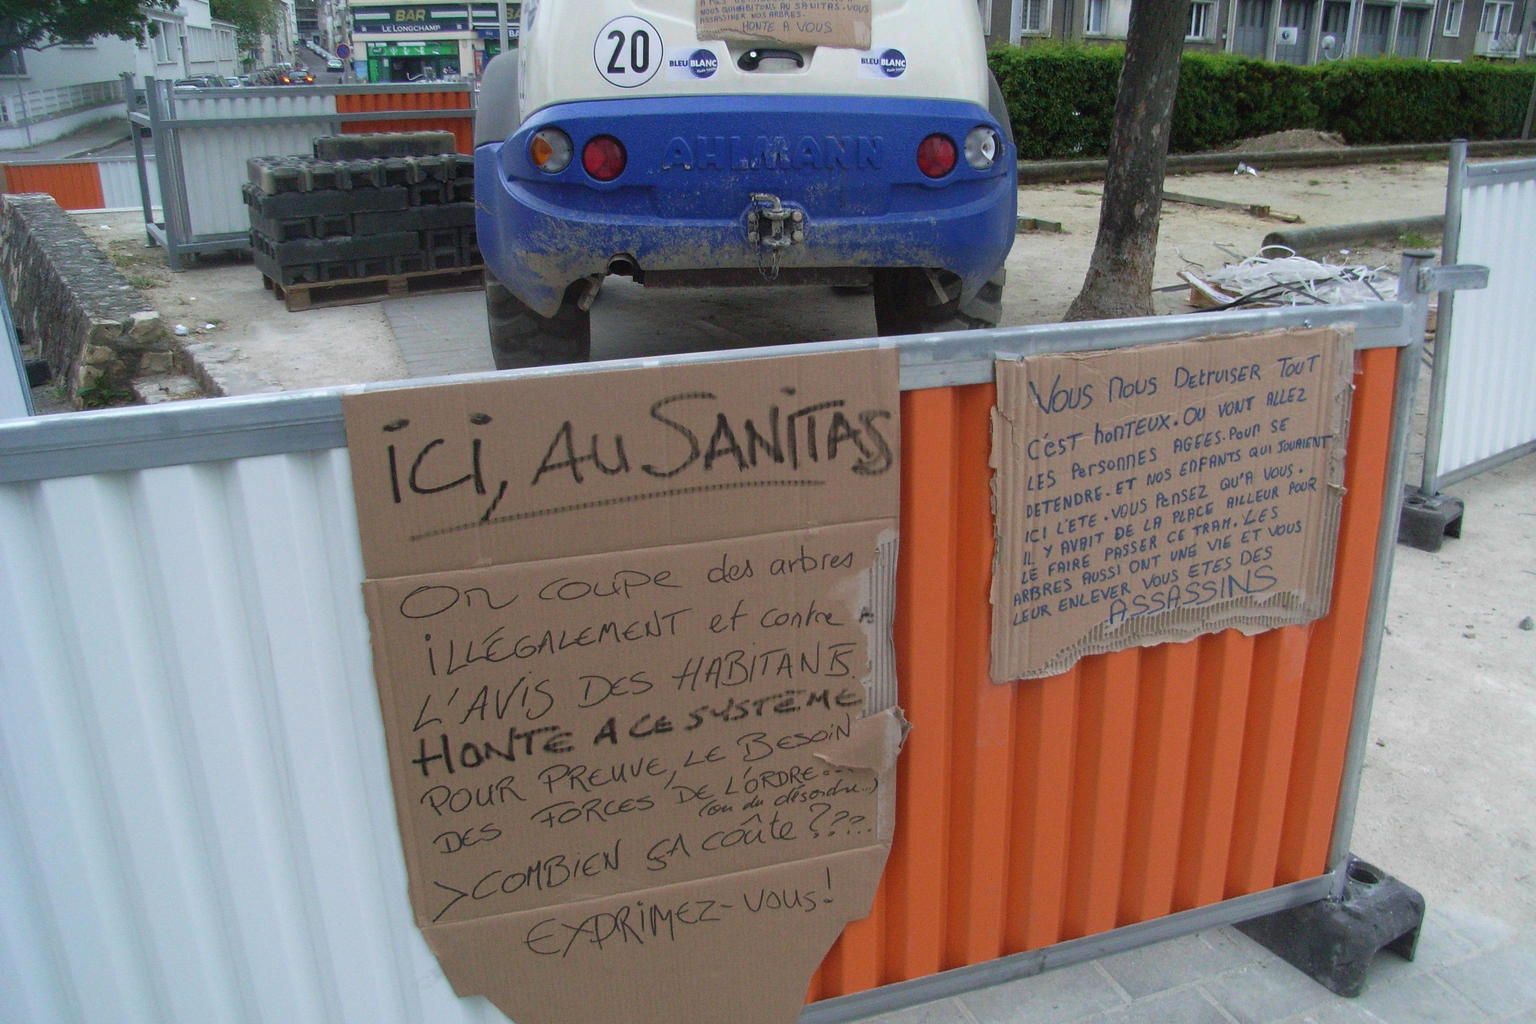 BAR
LE LONGCHAMP
20
BLEU BLANC
BLEU BLANC
NOUS HABITONS AU SANITAS. VOUS
ASSASSINER NOS ARBRES.
HONTE A VOUS
AHLMANN
ici, AU SANITAS
On coupe des arbres
iLLÉGALEMENT et contre
L'AVIS DES HABITANTS.
HONTE A CE SYSTÈME
POUR PREUVE, LE BESOIN
DES FORCES DE L'ORDRE...
(ou du désordre...)
>COMBIEN ÇA COÛTE ????...
EXPRIMEZ-VOUS!
VOUS NOUS DETRUISER TOUT
C'EST HONTEUX. OU VONT ALLEZ
LES PERSONNES AGEES. POUR SE
DETENDRE. ET NOS ENFANTS QUI JOUAIENT
ICI L'ETE. VOUS PENSEZ QU'A VOUS.
IL Y AVAIT DE LA PLACE AILLEUR POUR
LE FAIRE PASSER CE TRAM. LES
ARBRES AUSSI ONT UNE VIE ET VOUS
LEUR ENLEVER VOUS ETES DES
ASSASSINS